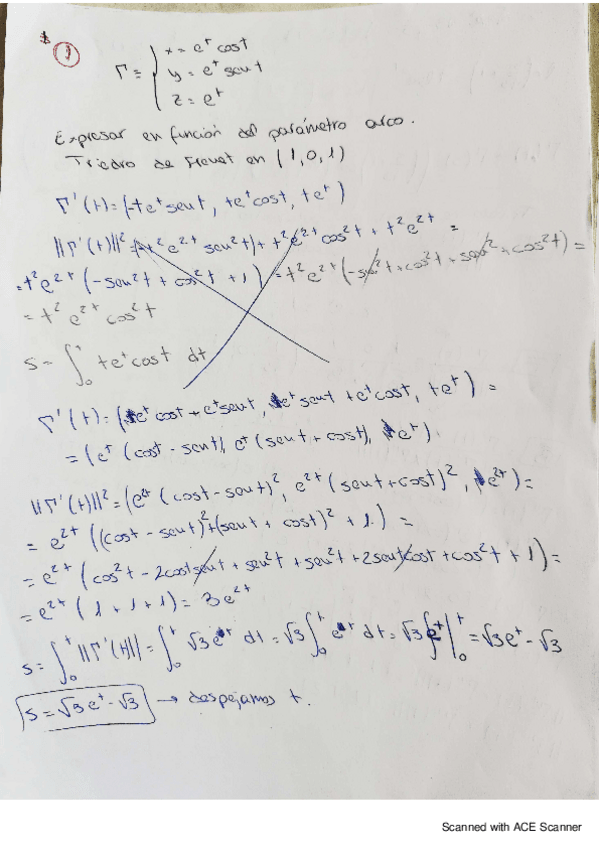 1
Γ ≡ { x = e^t cost
y = e^t sent
z = e^t
Expresar en función del parámetro arco.
Triedro de Frenet en (1,0,1)
Γ'(t) = (-te^t sent, te^t cost, te^t)
||Γ'(t)||² = (-t² e^2t sen²t) + t² e^2t cos²t + t² e^2t =
= t² e^2t (-sen²t + cos²t + 1) = t² e^2t (-sen²t + cos²t + sen²t + cos²t) =
= t² e^2t cos²t
s = ∫₀^t te^t cost dt
Γ'(t) = (e^t cost - e^t sent, e^t sent + e^t cost, e^t) =
= (e^t (cost - sent), e^t (sent + cost), e^t)
||Γ'(t)||² = (e^2t (cost - sent)², e^2t (sent + cost)², e^2t) =
= e^2t ((cost - sent)² + (sent + cost)² + 1) =
= e^2t (cos²t - 2costsent + sen²t + sen²t + 2sentcost + cos²t + 1) =
= e^2t (1 + 1 + 1) = 3e^2t
s = ∫₀^t ||Γ'(t)|| = ∫₀^t √3 e^t dt = √3 ∫₀^t e^t dt = √3 e^t |₀^t = √3e^t - √3
s = √3 e^t - √3 → despejamos t.
Scanned with ACE Scanner